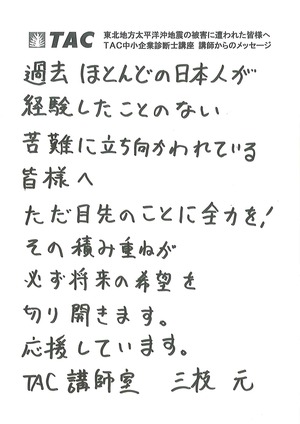 TAC 東北地方太平洋沖地震の被害に遭われた皆様へ
TAC中小企業診断士講座 講師からのメッセージ
過去 ほとんどの日本人が
経験したことのない
苦難に立ち向かわれている
皆様へ
ただ目先のことに全力を!
その積み重ねが
必ず将来の希望を
切り開きます。
応援しています。
TAC 講師室 三枝 元